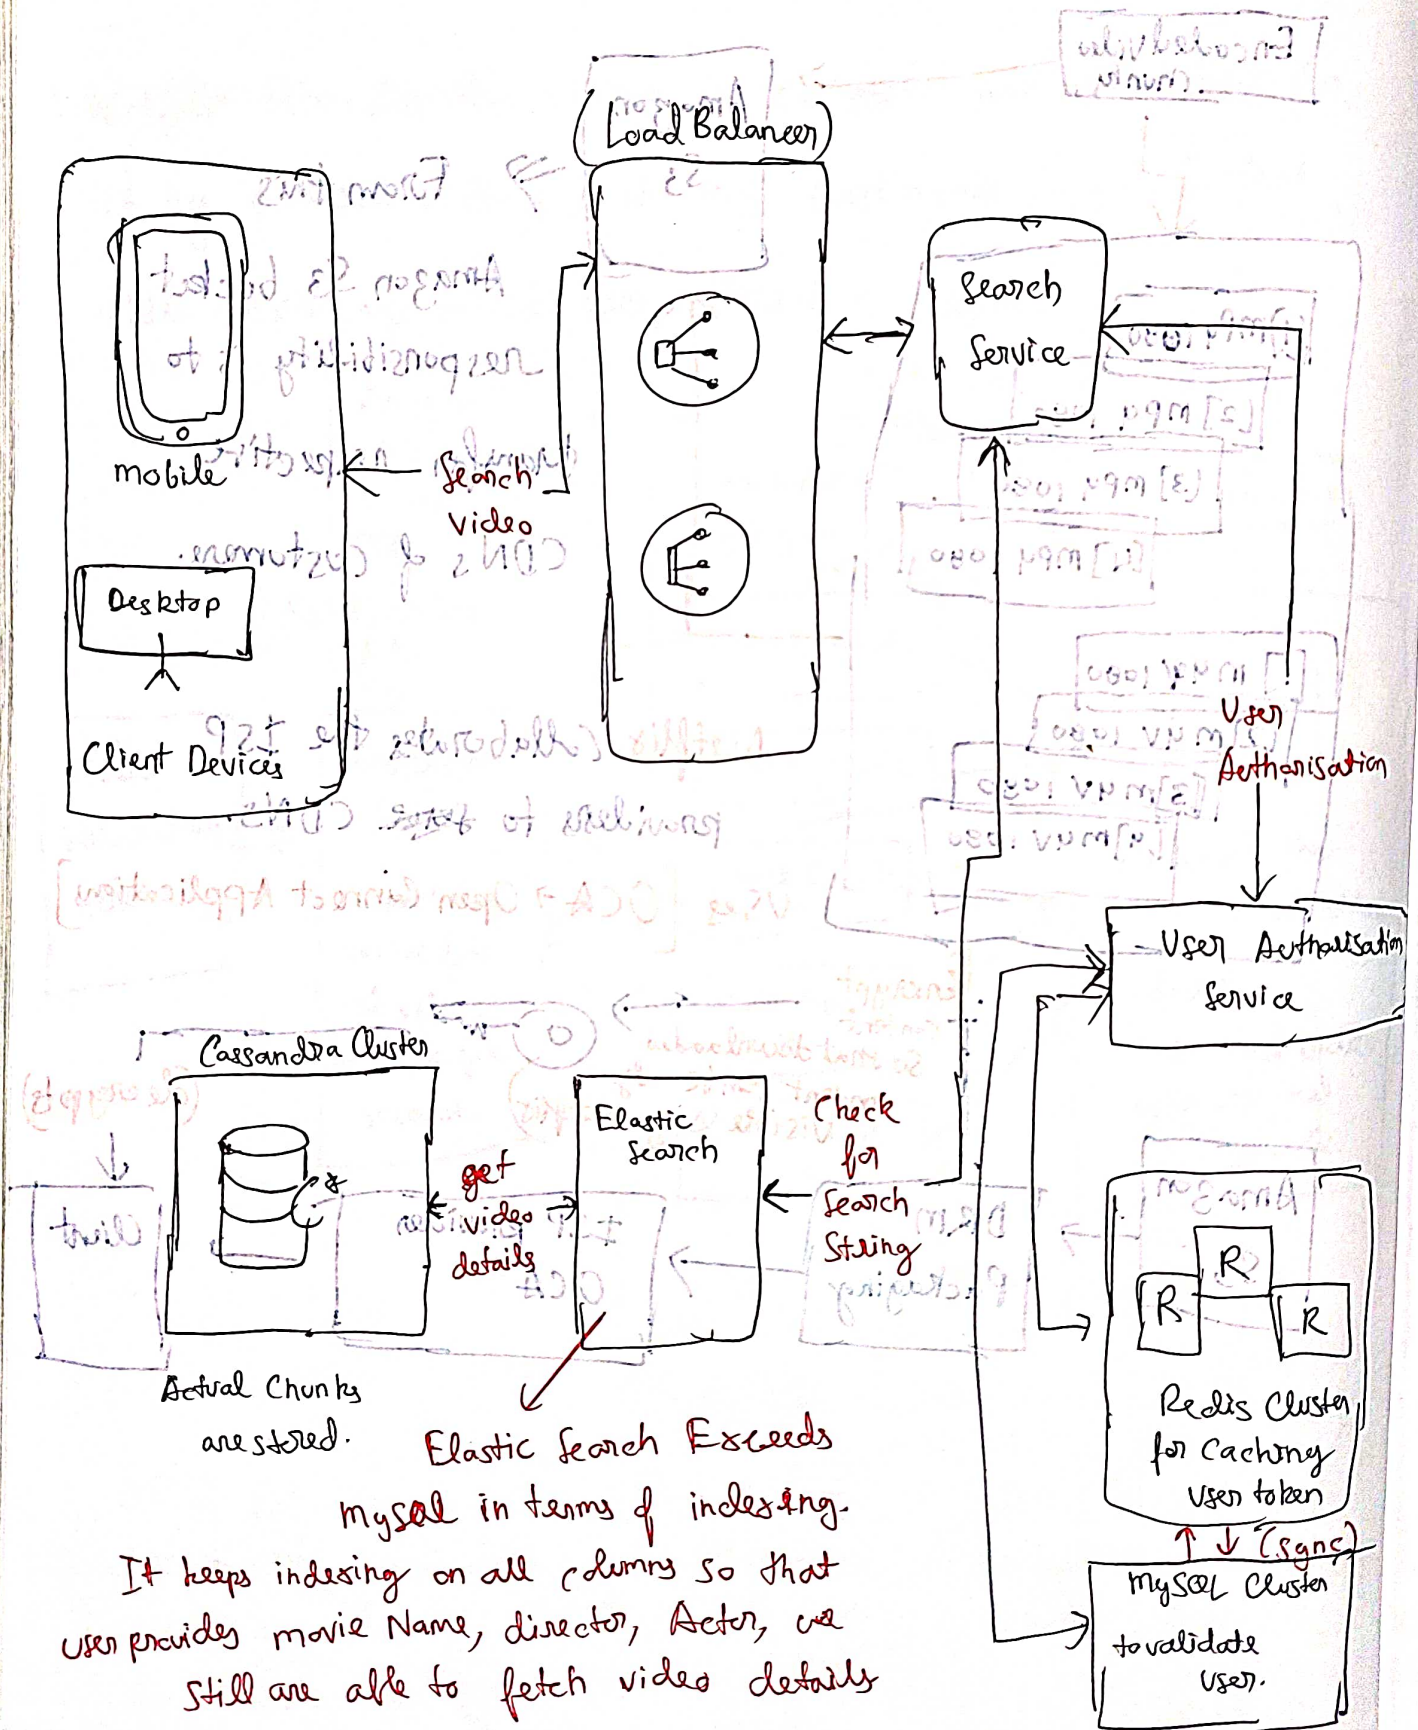 (Load Balancer)
mobile
Desktop
Client Devices
Search
video
Search
Service
User
Authorisation
User Authorisation
Service
Cassandra Cluster
Actual Chunks
are stored.
get
video
details
Elastic
Search
Check
for
Search
String
R
R
R
Redis Cluster
for Caching
user token
(sync)
MySQL Cluster
to validate
user.
Elastic Search Exceeds
MySQL in terms of indexing.
It keeps indexing on all columns so that
user provides movie Name, director, Actor, we
still are able to fetch video details